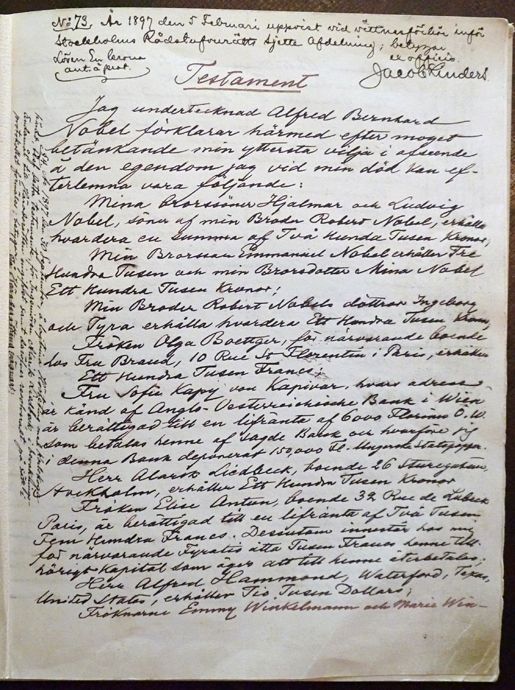 No 73. År 1897 den 5 Februari uppvist vid vittnesförhör inför
Stockholms Rådstufvurätts Sjette Afdelning; betygar
Lösen En krona
ex officio.
Jacob Lindert
Testament
Jag undertecknad Alfred Bernhard
Nobel förklarar härmed efter moget
betänkande min yttersta vilja i afseende
å den egendom jag vid min död kan ef-
terlemna vara följande:
Mina Brorsöner Hjalmar och Ludvig
Nobel, söner af min Broder Robert Nobel, erhålla
hvardera en summa af Två Hundra Tusen Kronor;
Min Brorson Emmanuel Nobel erhåller Tre
Hundra Tusen och min Brorsdotter Mina Nobel
Ett Hundra Tusen Kronor;
Min Broder Robert Nobels döttrar Ingeborg
och Tyra erhålla hvardera Ett Hundra Tusen Kronor;
Fröken Olga Boettger, för närvarande boende
hos Fru Brand, 10 Rue St Florentin i Paris, erhåller
Ett Hundra Tusen Francs;
Fru Sofie Kapy von Kapivar, hvars adress
är känd af Anglo-Oesterreichische Bank i Wien
är berättigad till en lifränta af 6000 Florins Ö.W.
som betalas henne af sagde Bank och hvarföre jag
i denna Bank deponerat 150,000 Fl. i Ungerska Statspapper;
Herr Alarik Liedbeck, boende 26 Sturegatan,
Stockholm, erhåller Ett Hundra Tusen Kronor
Fröken Elise Antun, boende 32 Rue de Lubeck
Paris, är berättigad till en lifränta af Två Tusen
Fem Hundra Francs. Dessutom innestår hos mig
för närvarande Fyratio åtta Tusen Francs henne till-
hörigt kapital som äger att till henne återbetalas;
Herr Alfred Hammond, Waterford, Texas,
United States, erhåller Tio Tusen Dollars;
Fröknarne Emmy Winkelmann och Marie Win-